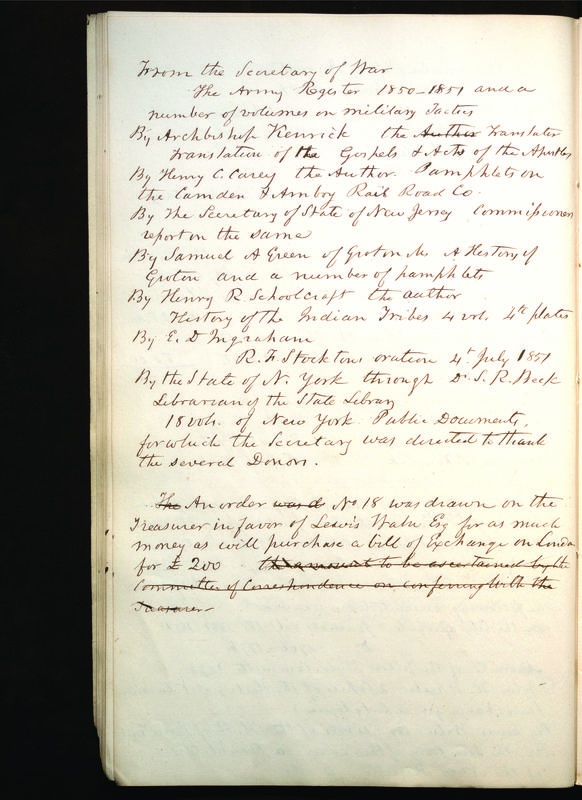 From the Secretary of War
The Army Register 1850-1851 and a
number of volumes on military Tactics
By Archbishop Kenrick the Author Translator
Translation of the Gospels & Acts of the Apostles
By Henry C. Carey the Author. Pamphlets on
the Camden & Amboy Rail Road Co.
By The Secretary of State of New Jersey Commissioners
report on the same
By Samuel A Green of Groton Ms A History of
Groton and a number of pamphlets
By Henry R. Schoolcraft the author
History of the Indian Tribes 4 vol. 4to plates
By E. D Ingraham
R. F. Stocktons oration 4t July 1851
By the State of N. York through Dr. S. R. Beck
Librarian of the State Library
18 vols. of New York Public Documents,
for which the Secretary was directed to thank
the several Donors.
The An order was ds No 18 was drawn on the
Treasurer in favor of Lewis Waln Esq for as much
money as will purchase a bill of Exchange on London
for £ 200 the amount to be ascertained by the
Committee of Correspondence on conferring with the
Treasurer